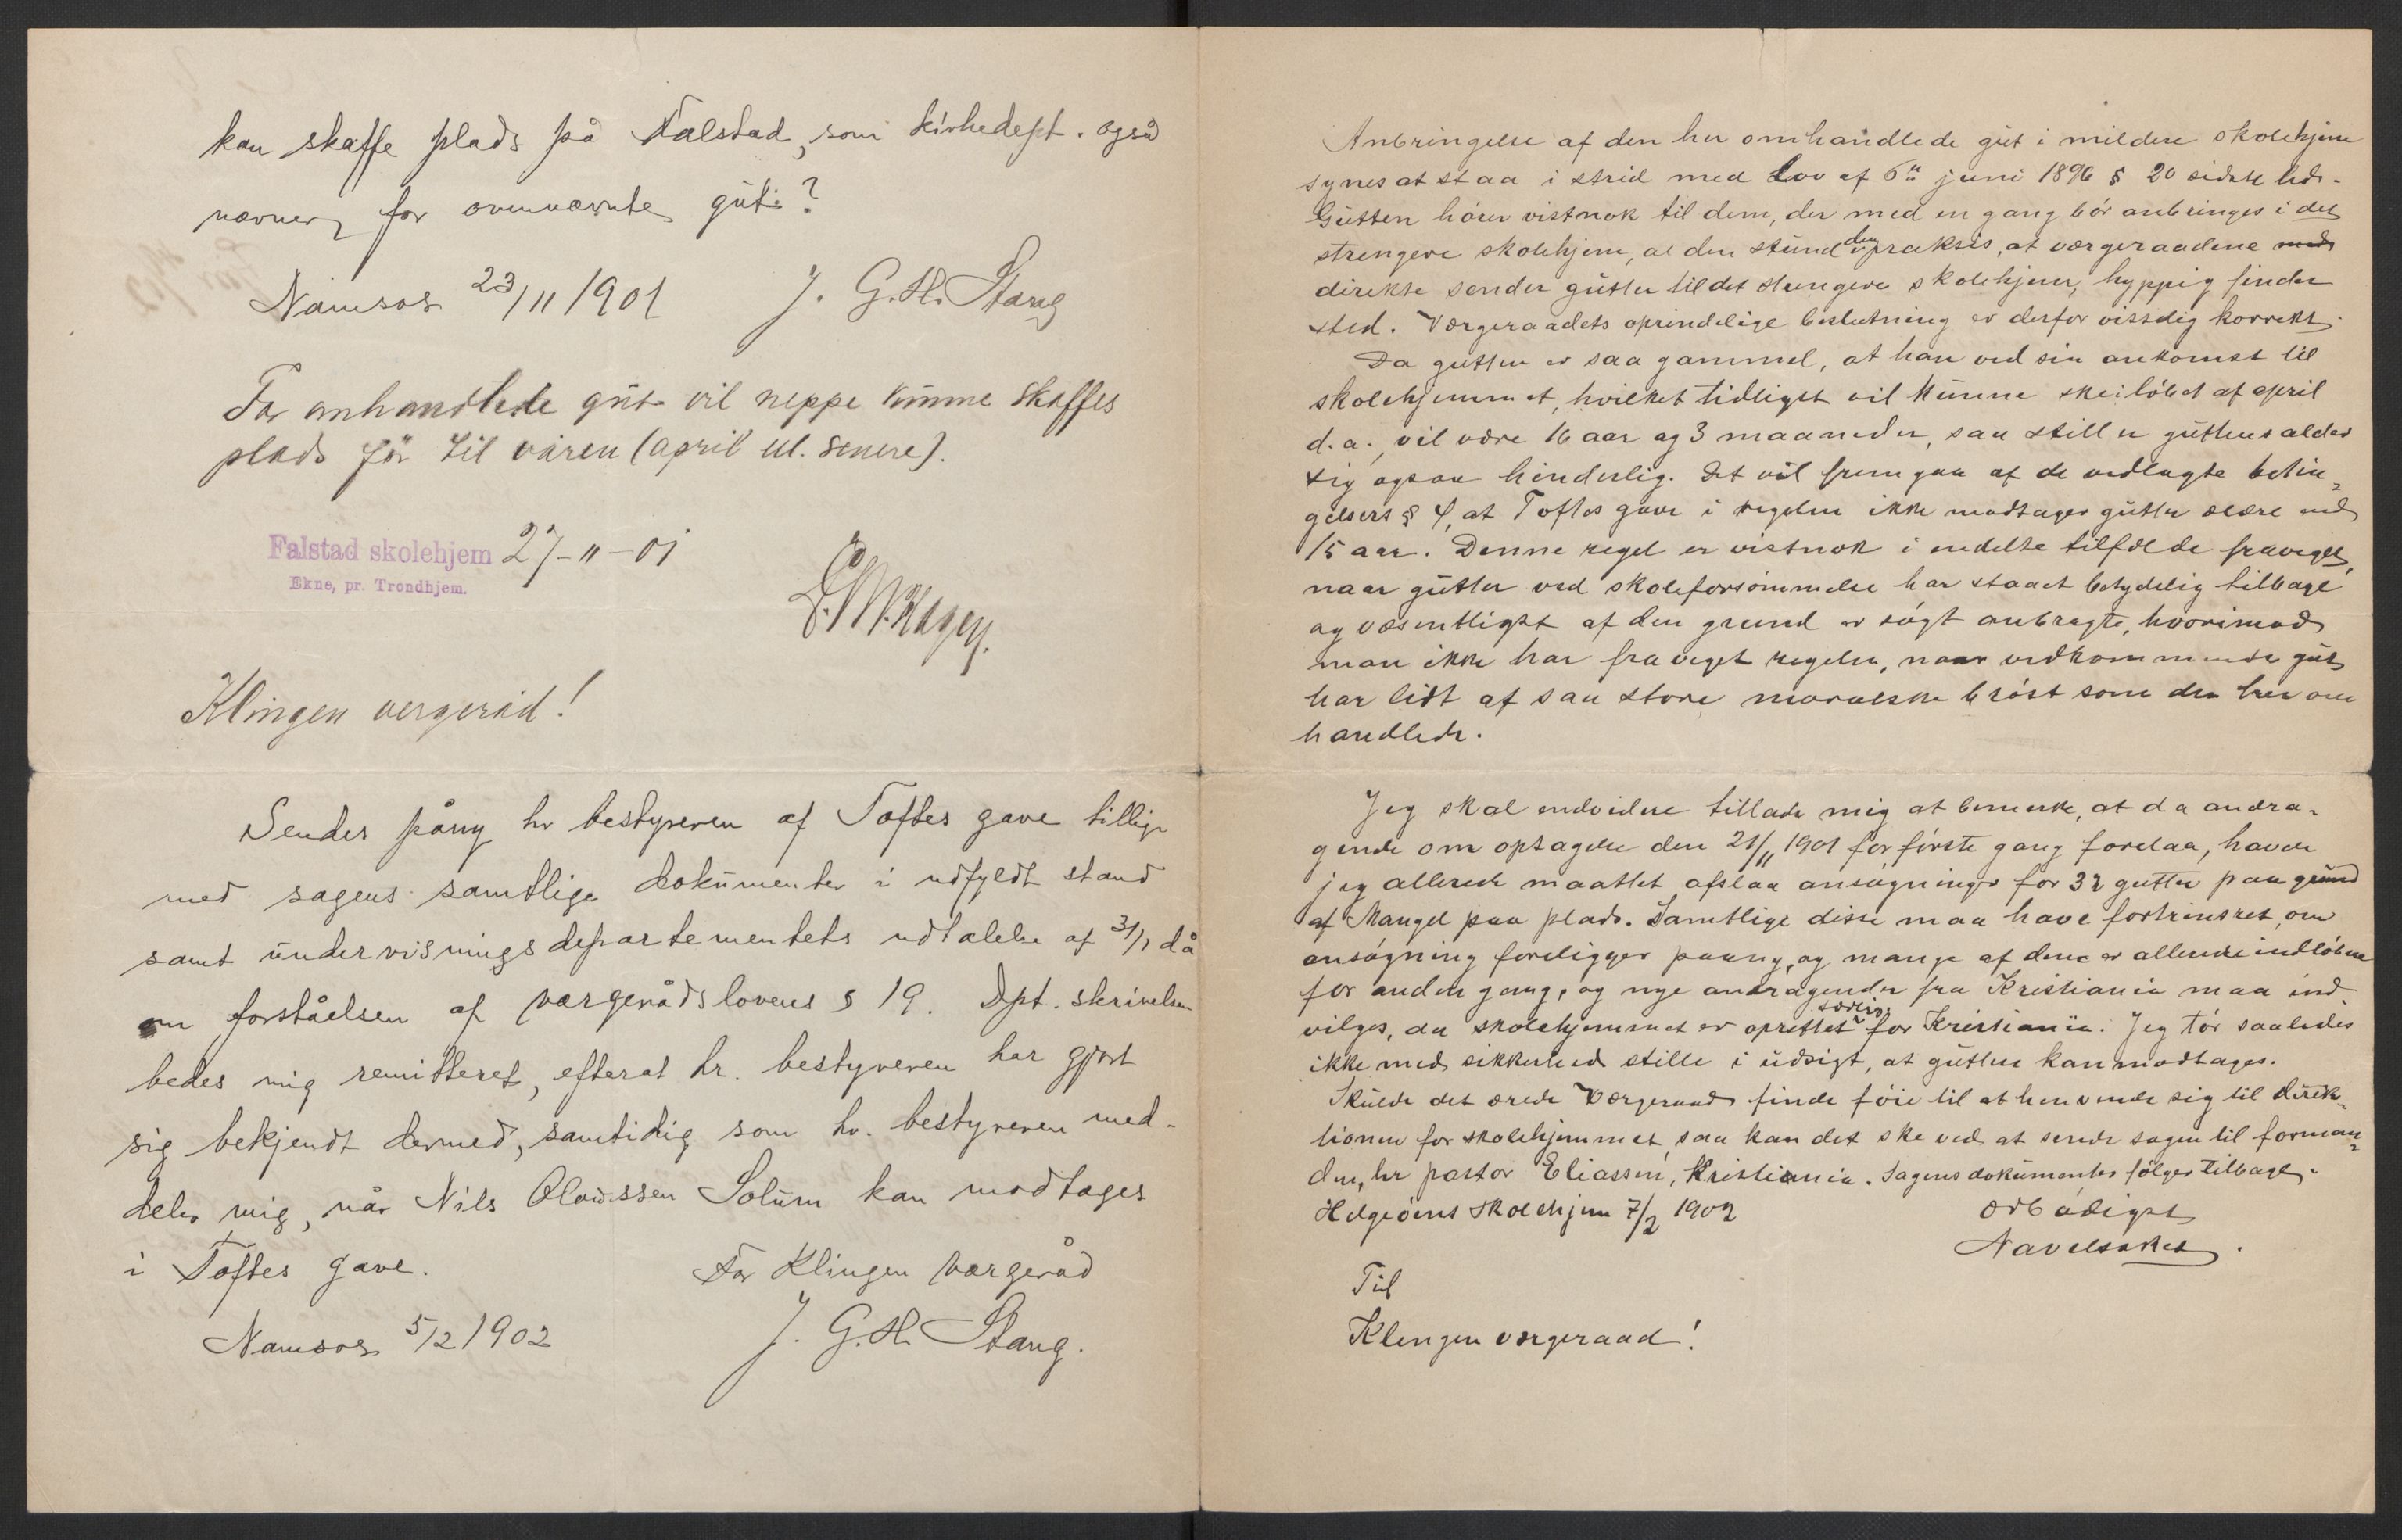 kan skaffe plads på Falstad, som kirkedept. også
nævner, for ovennævnte gut?
Namsos 23/11 1901 J. G. H. Stang
For omhandlede gut vil neppe kunne skaffes
plads før til våren (april el. senere).
Falstad skolehjem 27-11-01
Ekne, pr. Trondhjem.
Klingen vergeråd!
Sendes påny hr bestyreren af Toftes gave tillige
med sagens samtlige dokumenter i udfyldt stand
samt undervisningsdepartementets udtalelse af 31/1 då
om forståelsen af værgerådslovens § 19. Dpt. skrivelsen
bedes mig remitteret, efterat hr. bestyreren har gjort
sig bekjendt dermed, samtidig som hr. bestyreren med-
deler mig, når Nils Olaussen Solum kan modtages
i Toftes gave. For Klingen værgeråd
Namsos 5/2 1902 J. G. H. Stang.
Anbringelse af den her omhandlede gut i mildere skolehjem
synes at staa i strid med Lov af 6te juni 1896 § 20 sidste led.
Gutten hører vistnok til dem, der med en gang bør anbringes i det
strengere skolehjem, den praksis, at værgeraadene med
direkte sender gutter til det strengere skolehjem, hyppig finder
sted. Værgeraadets oprindelige beslutning er derfor vistelig korrekt.
Da gutten er saa gammel, at han ved sin ankomst til
skolehjemmet, hvilket tidligst vil kunne ske i løbet af april
d. a., vil være 16 aar og 3 maaneder, saa stiller guttens alder
sig ogsaa hinderlig. Det vil fremgaa af de vedlagte betin-
gelsers § 4, at Toftes gave i regelen ikke modtager gutter ældre end
15 aar. Denne regel er vistnok i enkelte tilfælde fraveget,
naar gutter ved skoleforsømmelse har staaet betydelig tilbage
og væsentligst af den grund er søgt anbragte, hvorimod
man ikke har fraveget regelen, naar vedkommende gut
har lidt af saa store moralske brøst som den her om
handlede.
Jeg skal endvidere tillade mig at bemerke, at da andra-
gende om optagelse den 21/11 1901 for første gang forelaa, havde
jeg allerede maattet afslaa ansøgninger for 32 gutter paa grund
af Mangel paa plads. Samtlige disse maa have fortrinsret, om
ansøgning foreligger paany, og mange af dem er allerede indløbne
for anden gang, og nye andragender fra Kristiania maa ind-
vilges, da skolehjemmet er oprettet særlig for Kristiania. Jeg tør saaledes
ikke med sikkerhed stille i udsigt, at gutten kan modtages.
Skulde det ærede Værgeraad finde føie til at henvende sig til direk-
tionen for skolehjemmet, saa kan det ske ved at sende sagen til forman-
den, hr pastor Eliassen, Kristiania. Sagens dokumenter følger tilbage.
Helgeøens Skolehjem 7/2 1902 ærbødigst
Navelsaker.
Til
Klingen værgeraad!